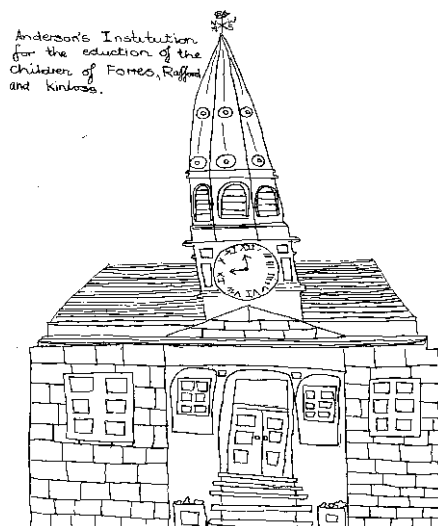 Anderson's Institution
for the eduction of the
Children of Forres, Rafford
and Kinloss.